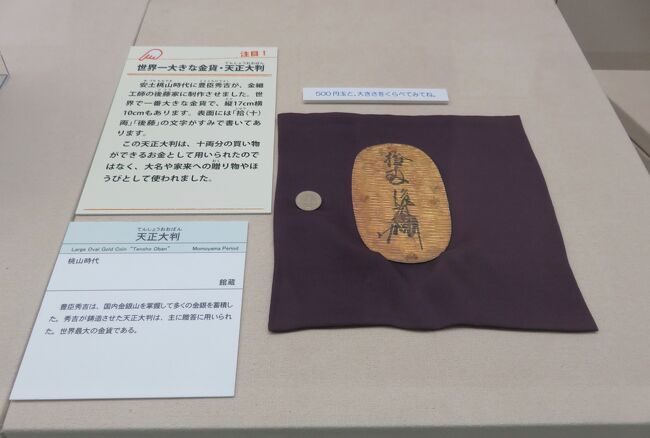 注目！
てんしょうおおばん
世界一大きな金貨・天正大判
安土桃山時代に豊臣秀吉が、金細
工師の後藤家に制作させました。世
界で一番大きな金貨で、縦17cm横
10cmもあります。表面には「拾（十）
両」「後藤」の文字がすみで書いてあ
ります。
この天正大判は、十両分の買い物
ができるお金として用いられたので
はなく、大名や家来への贈り物やほ
うびとして使われました。
500円玉と、大きさをくらべてみてね。
てんしょうおおばん
天正大判
Large Oval Gold Coin "Tensho Oban" Momoyama Period
桃山時代
館蔵
豊臣秀吉は、国内金銀山を掌握して多くの金銀を蓄積し
た。秀吉が鋳造させた天正大判は、主に贈答に用いられ
た。世界最大の金貨である。